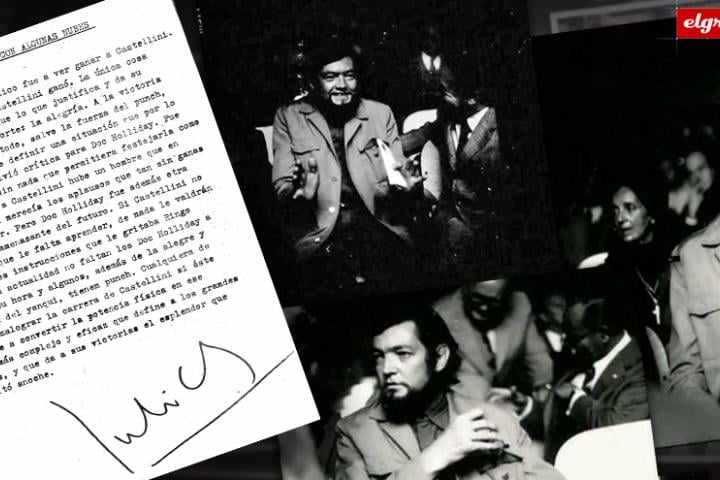 CON ALGUNAS NUBES
ico fue a ver ganar a Castellini.
stellini ganó. La única cosa
ue lo que justifica y da su
ortez la alegría. A la victoria
todo, salvo la fuerza del punch,
e definir una situación que por lo
lvió crítica para Doc Holliday. Fue
in nada que permitiera festejarla como
a Castellini hubo un hombre que en
merecía los aplausos que tan sin ganas
r. Pero Doc Holliday fue además otra
amenazante del futuro. Si Castellini no
que le falta aprender, de nada le valdrán
es instrucciones que le gritaba Ringo
actualidad no faltan los Doc Holliday a
u hora y algunos, además de la alegre y
del yanqui, tienen punch. Cualquiera de
malograr la carrera de Castellini si éste
e a convertir la potencia física en ese
más complejo y eficaz que define a los grandes
s, y que da a sus victorias el esplendor que
tó anoche.
Julio C
elgr